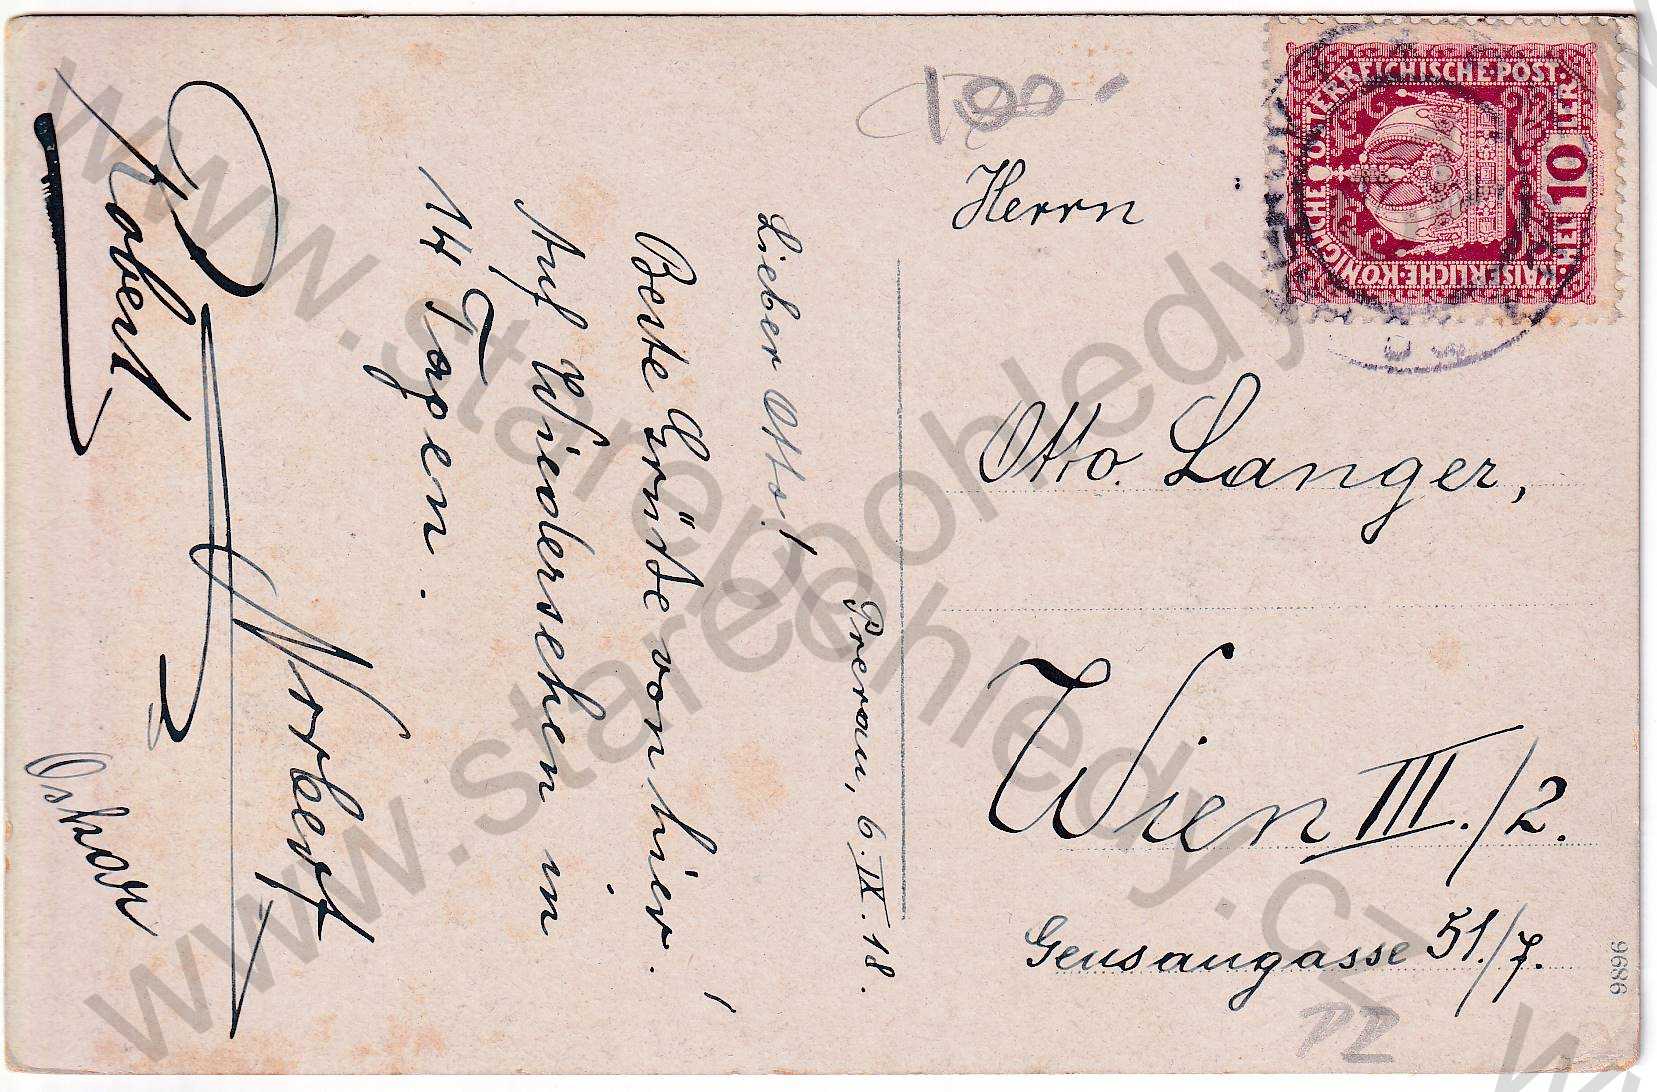 Prerau, 6.IX.18.
Lieber Otto!
Beste Grüße von hier.
Auf Wiedersehen in
14 Tagen.
Robert
Norbert
Oskar
100.-
Herrn
Otto Langer,
Wien III./2.
Geusaugasse 51./7.
PZ
9896
KAISERLICHE·KÖNIGLICHE ÖSTERREICHISCHE·POST·
HELLER
10
www.starepohledy.cz
www.starepohledy.cz